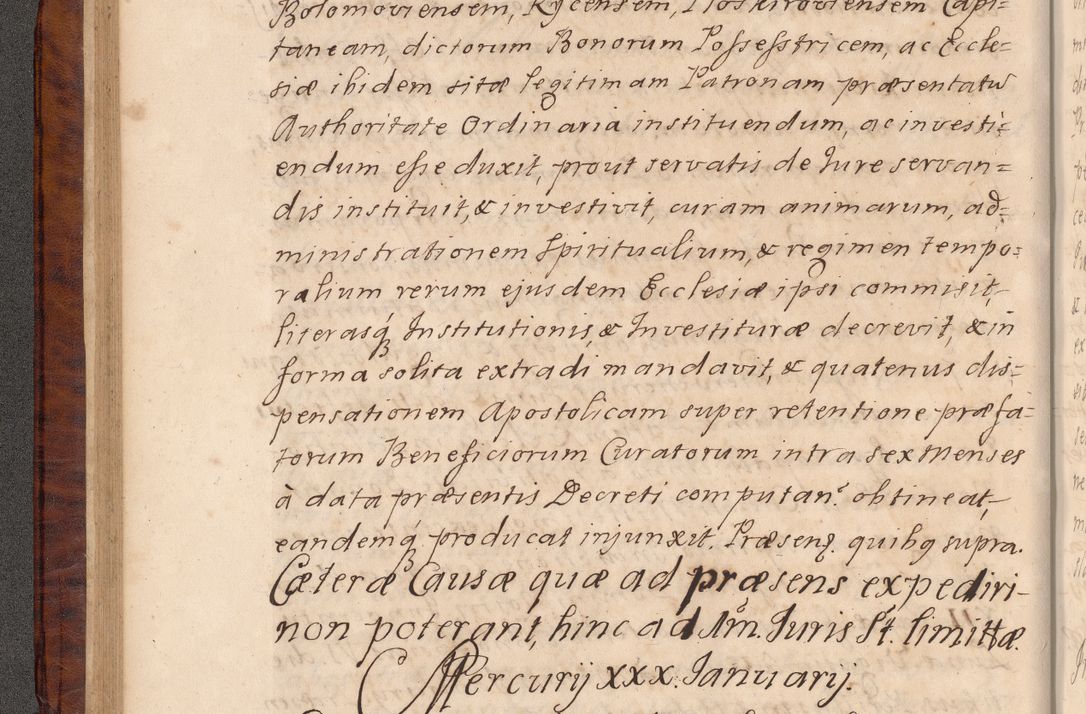 Bolomoviensem, Rycensem, Noskiroviensem Capi-
taneam, dictorum Bonorum Possesstricem, ac Eccle=
siæ ibidem sitæ legitimam Patronam præsentatũ
Authoritate Ordinaria instituendum, ac investi=
endum esse duxit, prout servatis de Jure servan=
dis instituit, & investivit, curam animarum, ad=
ministrationem Spiritualium, & regimen tempo=
ralium rerum ejusdem Ecclesiæ ipsi commisit,
literasq́ꝫ Institutionis, & Investituræ decrevit, & in
forma solita extradi mandavit, & quatenus dis=
pensationem Apostolicam super retentione præfa=
torum Beneficiorum Curatorum intra sex Menses
à data præsentis Decreti computan. obtineat,
eandemq́ꝫ producat injunxit. Præsenꝫ. quibꝗ supra.
Cæteræ Causæ quæ ad præsens expediri
non poterant, hinc ad Jm. Juris St. limittæ.
Mercurij XXX. Januarij.